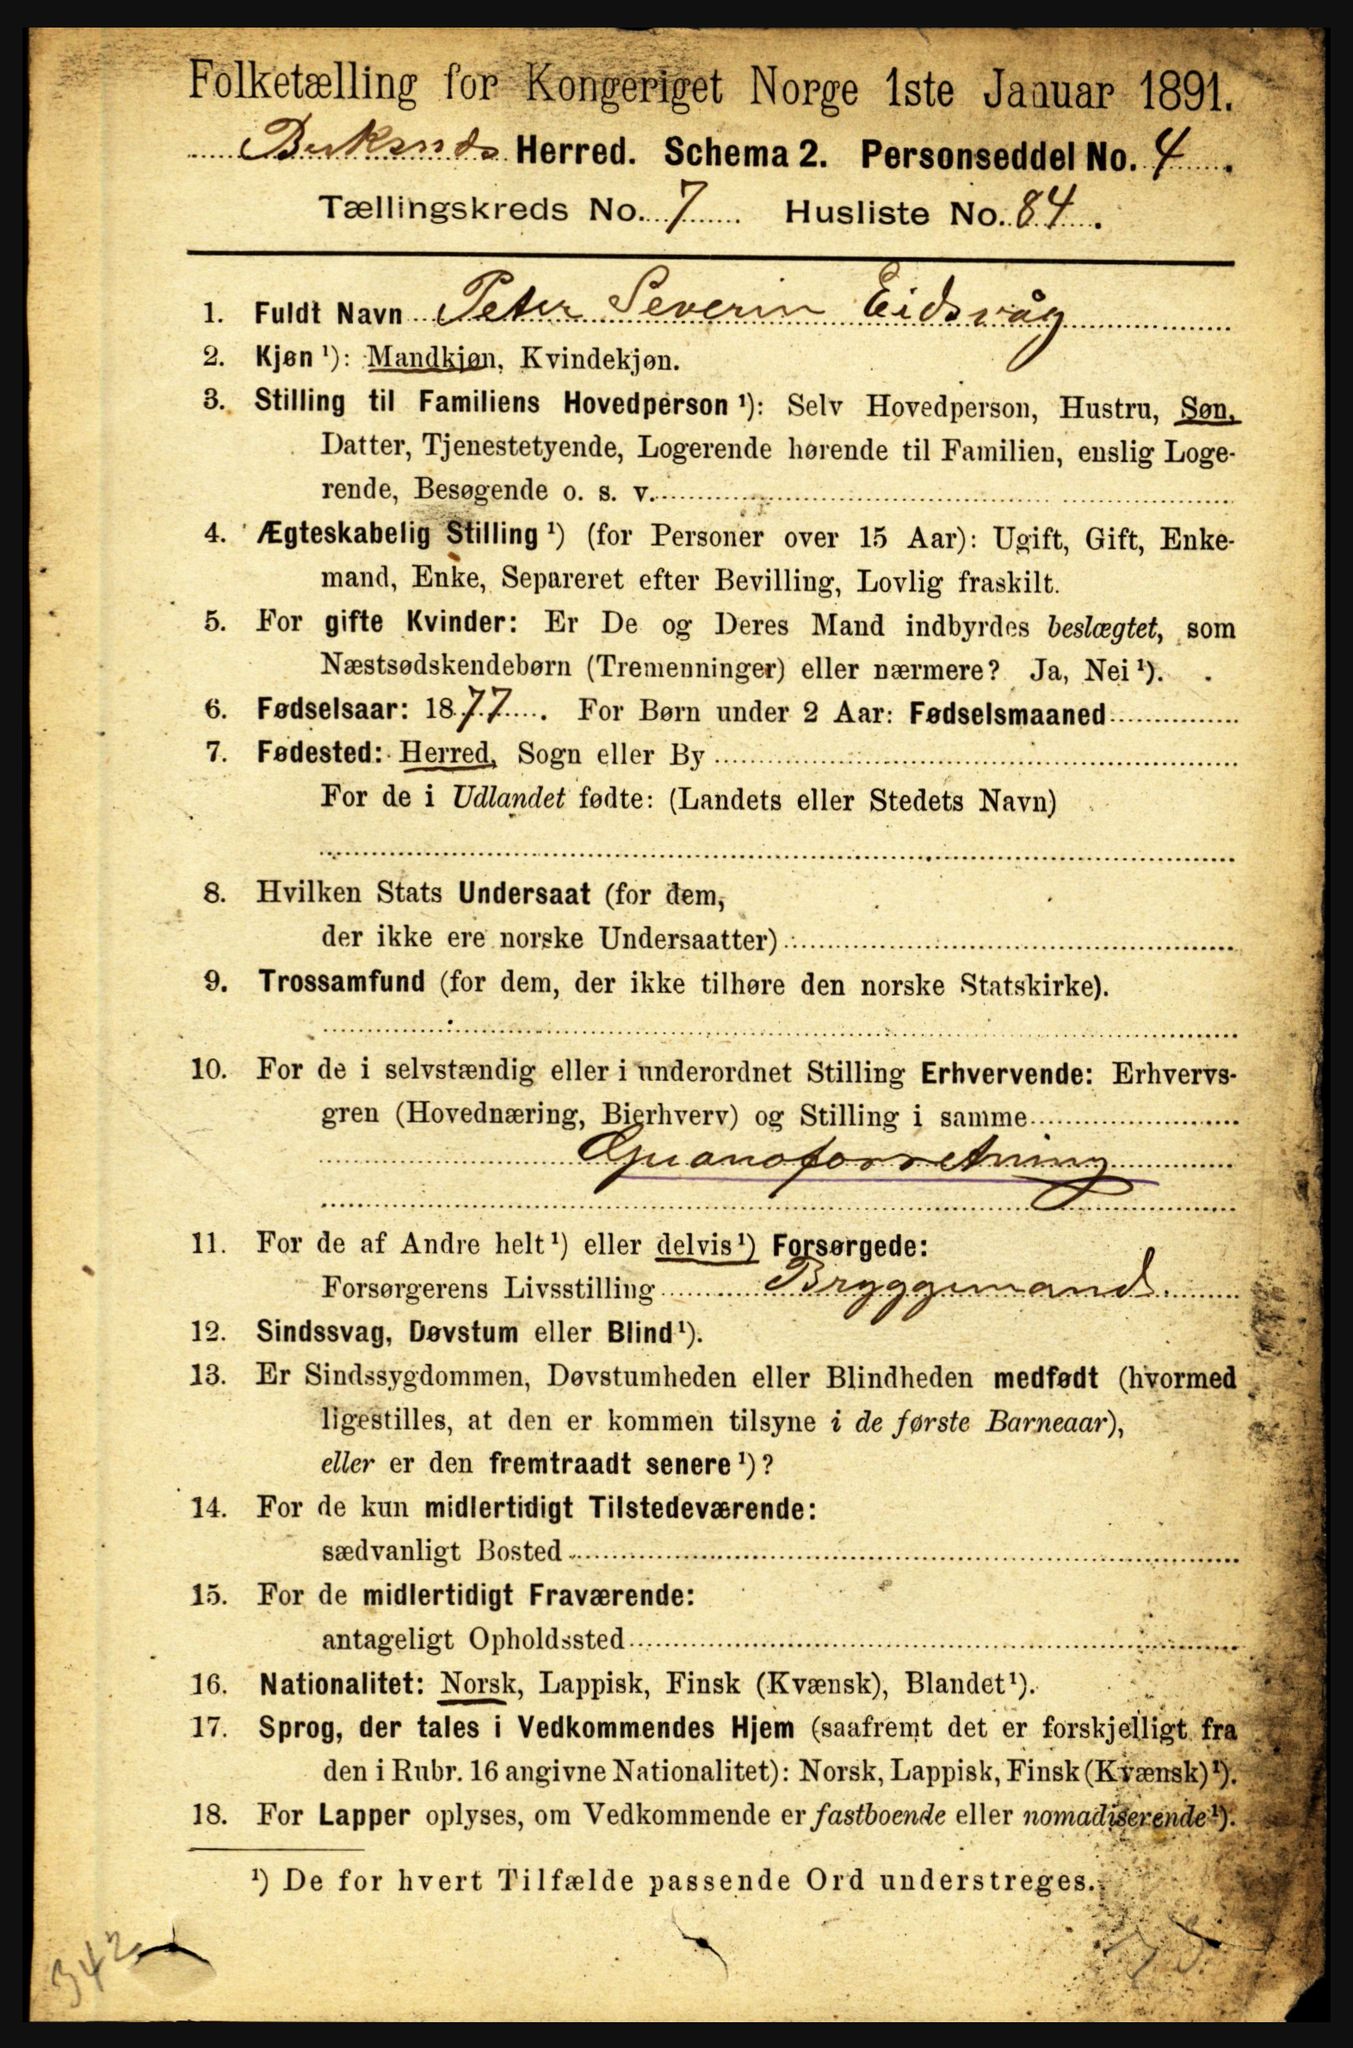 Folketælling for Kongeriget Norge 1ste Januar 1891.
Buksnæs Herred. Schema 2. Personseddel No. 4.
Tællingskreds No. 7 Husliste No. 84.
1. Fuldt Navn Peter Severin Eidsvåg
2. Kjøn ¹): Mandkjøn, Kvindekjøn.
3. Stilling til Familiens Hovedperson ¹): Selv Hovedperson, Hustru, Søn,
Datter, Tjenestetyende, Logerende hørende til Familien, enslig Loge-
rende, Besøgende o. s. v.
4. Ægteskabelig Stilling ¹) (for Personer over 15 Aar): Ugift, Gift, Enke-
mand, Enke, Separeret efter Bevilling, Lovlig fraskilt.
5. For gifte Kvinder: Er De og Deres Mand indbyrdes beslægtet, som
Næstsødskendebørn (Tremenninger) eller nærmere? Ja, Nei ¹).
6. Fødselsaar: 1877. For Børn under 2 Aar: Fødselsmaaned
7. Fødested: Herred, Sogn eller By
For de i Udlandet fødte: (Landets eller Stedets Navn)
8. Hvilken Stats Undersaat (for dem,
der ikke ere norske Undersaatter)
9. Trossamfund (for dem, der ikke tilhøre den norske Statskirke).
10. For de i selvstændig eller i underordnet Stilling Erhvervende: Erhvervs-
gren (Hovednæring, Bierhverv) og Stilling i samme
Guanoforretning
11. For de af Andre helt ¹) eller delvis ¹) Forsørgede:
Forsørgerens Livsstilling Bryggemand.
12. Sindssvag, Døvstum eller Blind ¹).
13. Er Sindssygdommen, Døvstumheden eller Blindheden medfødt (hvormed
ligestilles, at den er kommen tilsyne i de første Barneaar),
eller er den fremtraadt senere ¹)?
14. For de kun midlertidigt Tilstedeværende:
sædvanligt Bosted
15. For de midlertidigt Fraværende:
antageligt Opholdssted
16. Nationalitet: Norsk, Lappisk, Finsk (Kvænsk), Blandet ¹).
17. Sprog, der tales i Vedkommendes Hjem (saafremt det er forskjelligt fra
den i Rubr. 16 angivne Nationalitet): Norsk, Lappisk, Finsk (Kvænsk) ¹).
18. For Lapper oplyses, om Vedkommende er fastboende eller nomadiserende ¹).
¹) De for hvert Tilfælde passende Ord understreges.
342